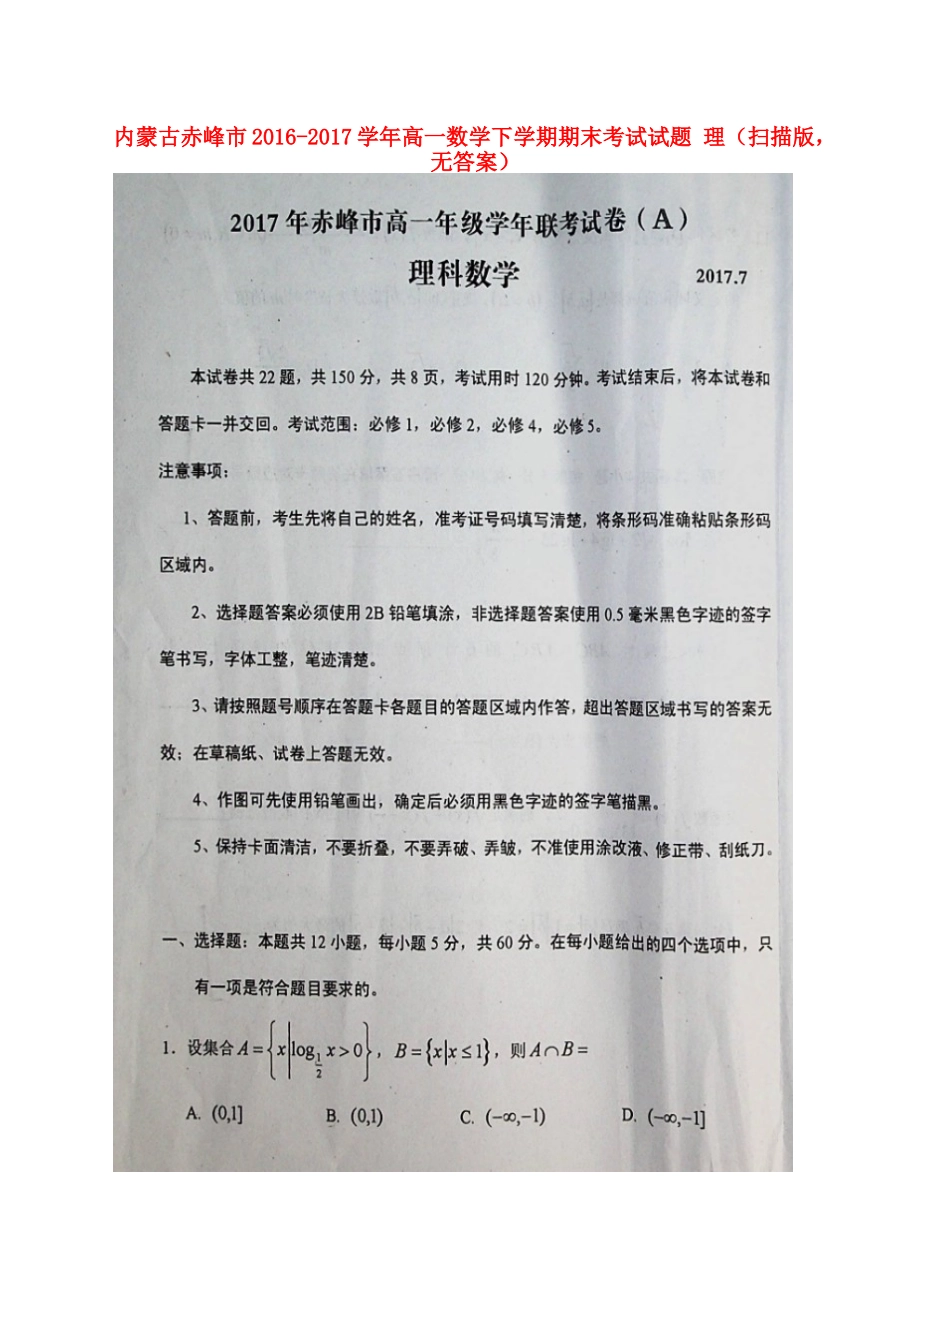 内蒙古赤峰市 2016-2017 学年高一数学下学期期末考试试题 理（扫描版，
无答案）
2017 年赤峰市高一年级学年联考试卷（A）
理科数学 2017.7
本试卷共 22 题，共 150 分，共 8 页，考试用时 120 分钟。考试结束后，将本试卷和
答题卡一并交回。考试范围：必修 1，必修 2，必修 4，必修 5。
注意事项：
1、答题前，考生先将自己的姓名，准考证号码填写清楚，将条形码准确粘贴条形码
区域内。
2、选择题答案必须使用 2B 铅笔填涂，非选择题答案使用 0.5 毫米黑色字迹的签字
笔书写，字体工整，笔迹清楚。
3、请按照题号顺序在答题卡各题目的答题区域内作答，超出答题区域书写的答案无
效；在草稿纸、试卷上答题无效。
4、作图可先使用铅笔画出，确定后必须用黑色字迹的签字笔描黑。
5、保持卡面清洁，不要折叠，不要弄破、弄皱，不准使用涂改液、修正带、刮纸刀。
一、选择题：本题共 12 小题，每小题 5 分，共 60 分。在每小题给出的四个选项中，只
有一项是符合题目要求的。
1．设集合 A={x|log_{1/2} x>0}，B={x|x≤1}，则 A∩B=
A. (0,1] B. (0,1) C. (−∞,−1) D. (−∞,−1]